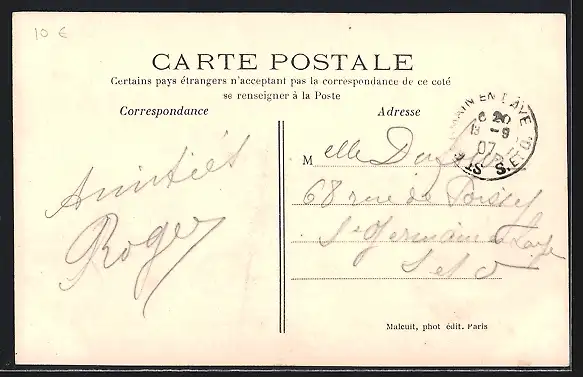 10 €
CARTE POSTALE
Certains pays étrangers n'acceptant pas la correspondance de ce coté
se renseigner à la Poste
Correspondance
Adresse
Amitiés
Roger
Melle
68 rue de Poissy
St Germain en Laye
S et O
ST GERMAIN EN LAYE
6 20
9
07
S. ET O.
Malcuit, phot édit. Paris